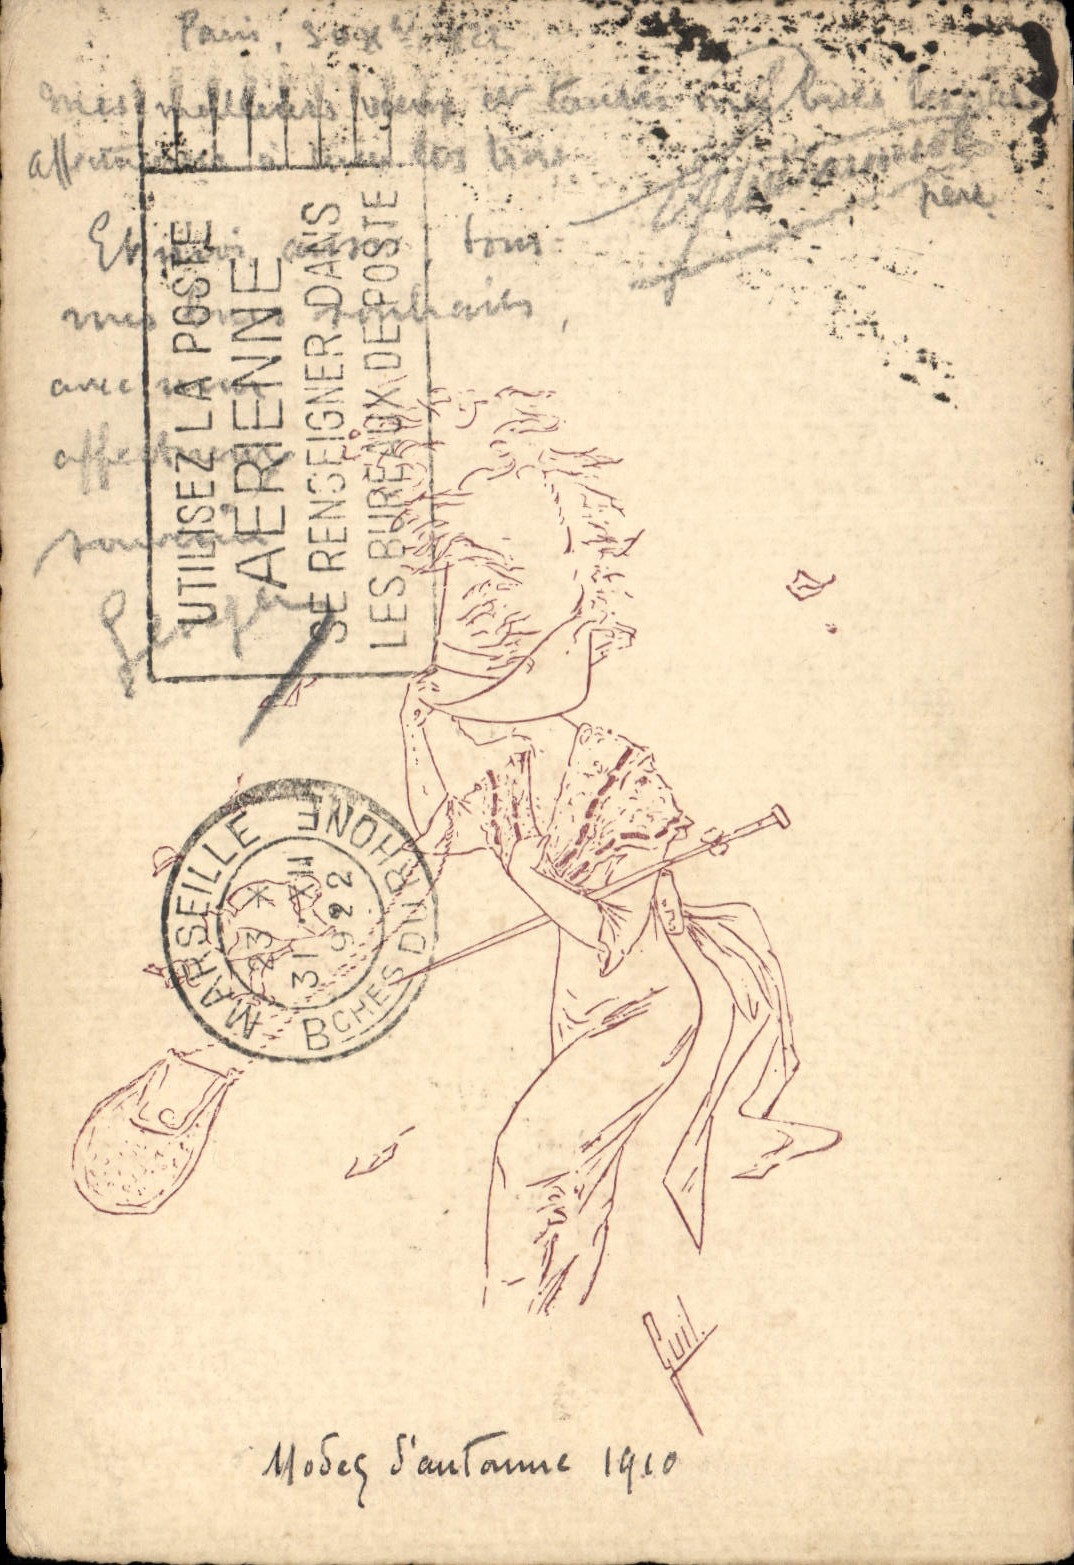 Paris, 30 Xbre 1922
mes meilleurs vœux et toutes mes très
à tous les trois
père
Et moi aussi, tous
mes souhaits,
avec mon
affectueux
souvenir
Georges
UTILISEZ LA POSTE
AÉRIENNE
SE RENSEIGNER DANS
LES BUREAUX DE POSTE
MARSEILLE
BCHES DU RHONE
23 *
31 - XII
922
Guil.
Modes d'automne 1910